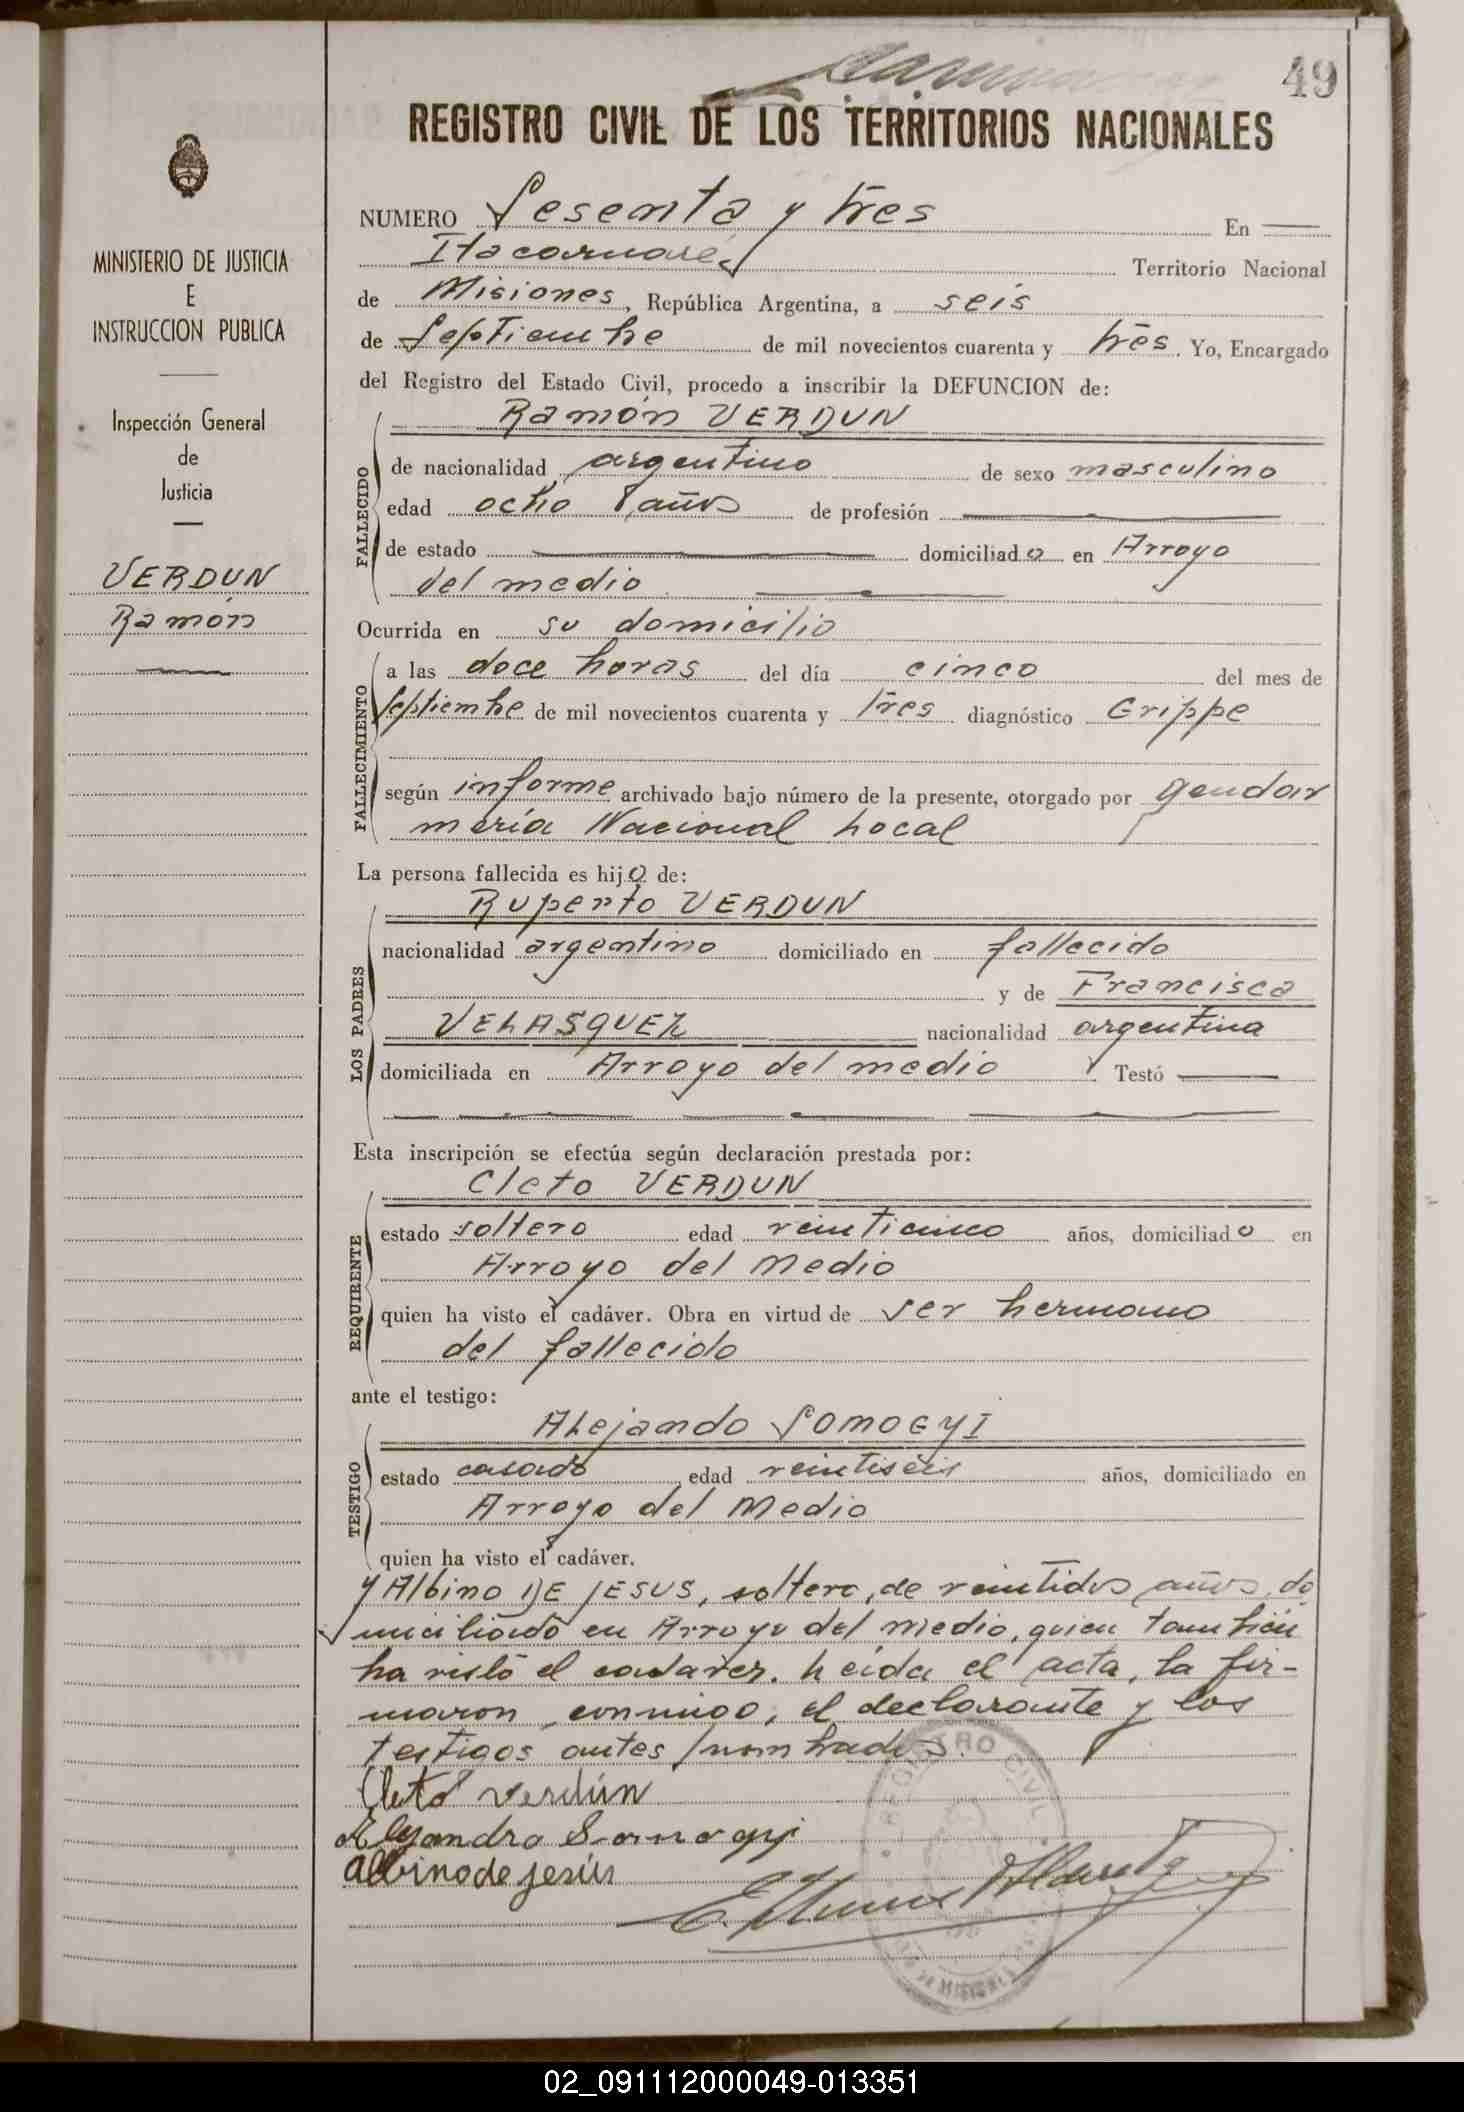 49
REGISTRO CIVIL DE LOS TERRITORIOS NACIONALES
MINISTERIO DE JUSTICIA
E
INSTRUCCION PUBLICA
Inspección General
de
Justicia
VERDUN
Ramón
NUMERO Sesenta y tres En
Itacaruaré Territorio Nacional
de Misiones, República Argentina, a seis
de Septiembre de mil novecientos cuarenta y tres. Yo, Encargado
del Registro del Estado Civil, procedo a inscribir la DEFUNCION de:
Ramón VERDUN
FALLECIDO
de nacionalidad argentino de sexo masculino
edad ocho 8 años de profesión
de estado domiciliado en Arroyo
del medio
Ocurrida en su domicilio
FALLECIMIENTO
a las doce horas del día cinco del mes de
Septiembre de mil novecientos cuarenta y tres diagnóstico Grippe
según informe archivado bajo número de la presente, otorgado por gendar
mería Nacional Local
La persona fallecida es hijo de:
Ruperto VERDUN
LOS PADRES
nacionalidad argentino domiciliado en fallecido
y de Francisca
VELASQUEZ nacionalidad argentina
domiciliada en Arroyo del medio Testó
Esta inscripción se efectúa según declaración prestada por:
Cleto VERDUN
REQUIRENTE
estado soltero edad veinticinco años, domiciliado en
Arroyo del Medio
quien ha visto el cadáver. Obra en virtud de ser hermano
del fallecido
ante el testigo:
ALejando SOMOGYI
TESTIGO
estado casado edad veintiseis años, domiciliado en
Arroyo del Medio
quien ha visto el cadáver.
y Albino DE JESUS, soltero, de veintidos años, do
miciliado en Arroyo del medio, quien también
ha visto el cadaver. Leida el acta, la fir-
maron conmigo, el declarante y los
testigos antes nombrados.
Cleto verdún
Alejandro Somogyi
albino de jesús
REGISTRO CIVIL
02_091112000049-013351